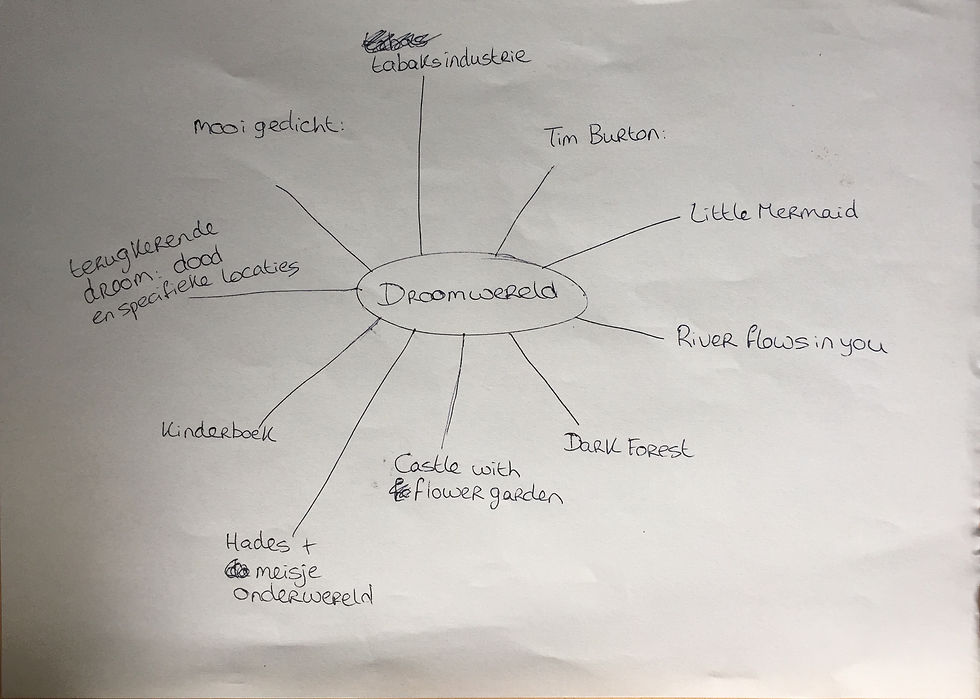 tabaksindustrie
mooi gedicht:
Tim Burton:
Little Mermaid
terugkerende
droom: dood
en specifieke locaties
Droomwereld
River flows in you
Kinderboek
Dark Forest
Castle with
flower garden
Hades +
meisje
onderwereld